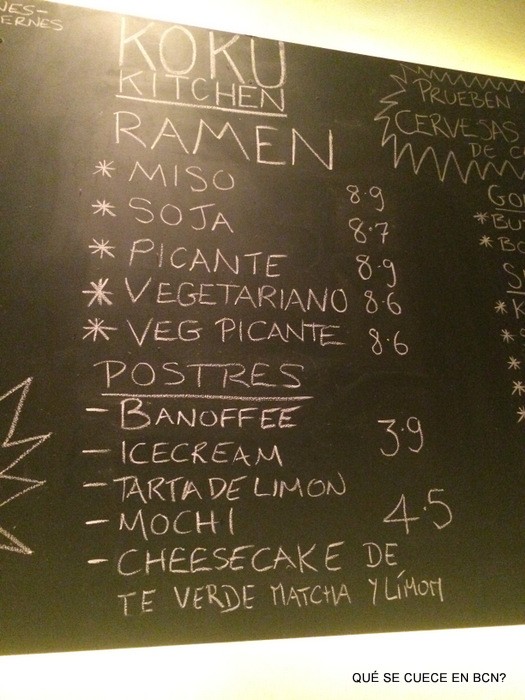 KOKU
KITCHEN
RAMEN
* MISO 8.9
* SOJA 8.7
* PICANTE 8.9
* VEGETARIANO 8.6
* VEG PICANTE 8.6
POSTRES
- BANOFFEE 3.9
- ICECREAM
- TARTA DE LIMON
- MOCHI 4.5
- CHEESECAKE DE
TE VERDE MATCHA Y LÍMOM
PRUEBEN
CERVESAS
DE
QUÉ SE CUECE EN BCN?